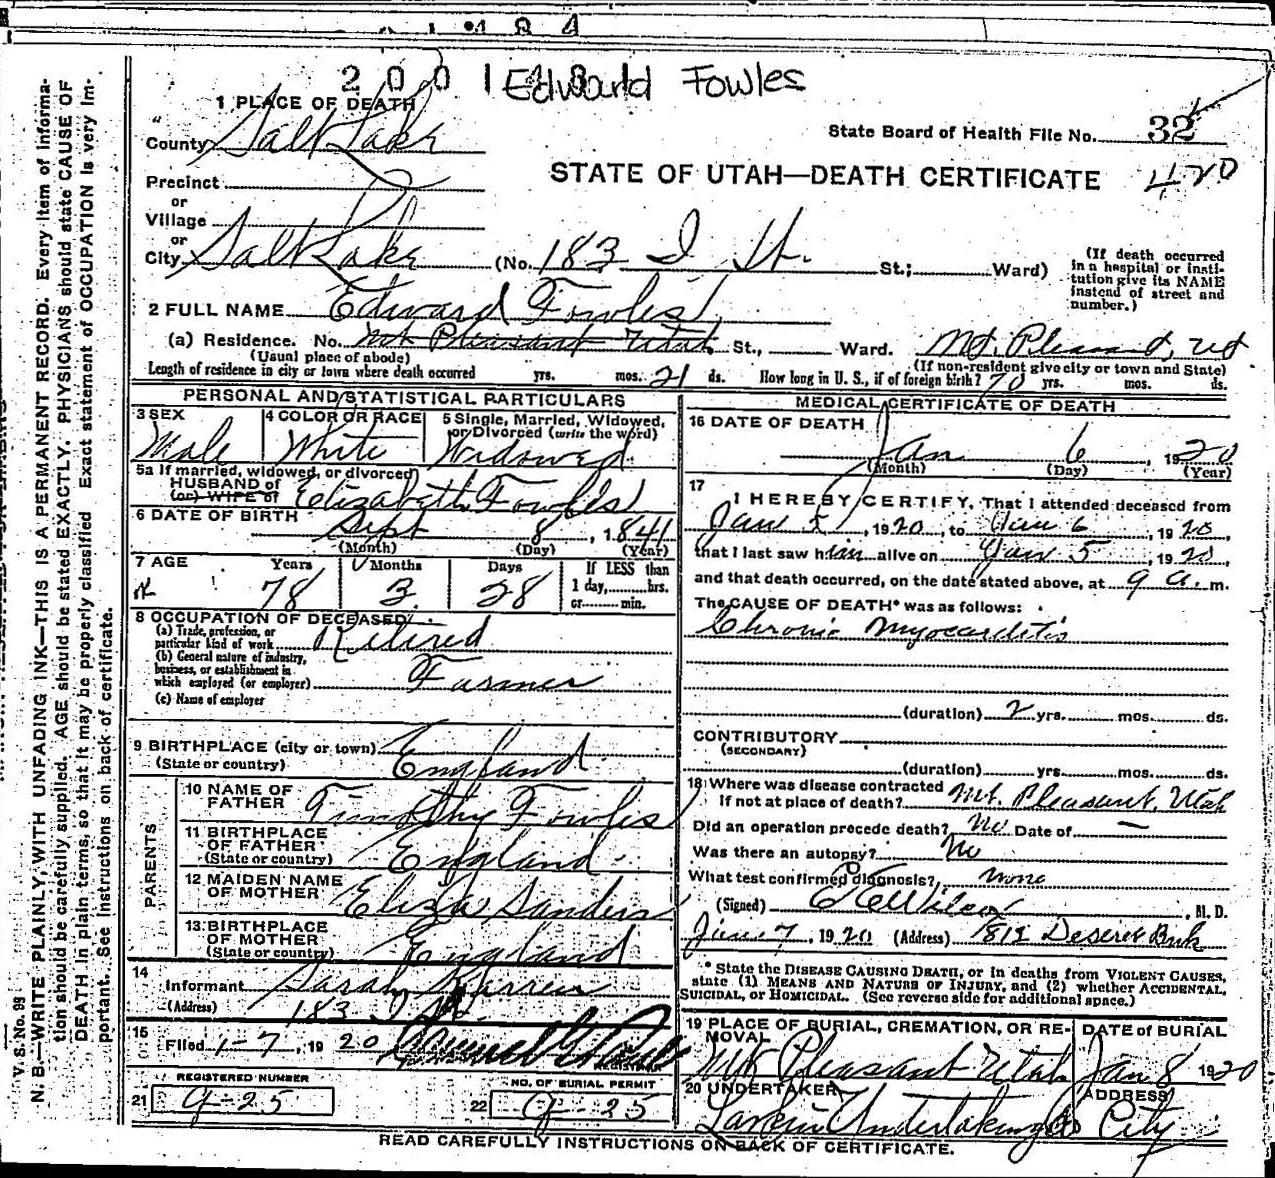 Edward Fowles
1 PLACE OF DEATH
County Salt Lake
State Board of Health File No. 32
STATE OF UTAH—DEATH CERTIFICATE 420
Precinct
or
Village
or
City Salt Lake (No. 183 I St. St.; Ward)
(If death occurred in a hospital or insti-
tution give its NAME
instead of street and
number.)
2 FULL NAME Edward Fowles
(a) Residence. No. Mt Pleasant Utah St., Ward. Mt. Pleasant, Ut
(Usual place of abode) (If non-resident give city or town and State)
Length of residence in city or town where death occurred yrs. mos. 21 ds. How long in U. S., if of foreign birth? 70 yrs. mos. ds.
PERSONAL AND STATISTICAL PARTICULARS
3 SEX
Male
4 COLOR OR RACE
White
5 Single, Married, Widowed,
or Divorced (write the word)
Widowed
5a If married, widowed, or divorced
HUSBAND of
(or) WIFE of Elizabeth Fowles
6 DATE OF BIRTH
Sept 8, 1841
(Month) (Day) (Year)
7 AGE Years Months Days If LESS than
1 day, hrs.
or min.
78 3 28
8 OCCUPATION OF DECEASED
(a) Trade, profession, or
particular kind of work Retired
(b) General nature of industry,
business, or establishment in
which employed (or employer) Farmer
(c) Name of employer
9 BIRTHPLACE (city or town)
(State or country) England
PARENTS
10 NAME OF
FATHER Timothy Fowles
11 BIRTHPLACE
OF FATHER
(State or country) England
12 MAIDEN NAME
OF MOTHER Eliza Sanders
13 BIRTHPLACE
OF MOTHER
(State or country) England
14
Informant Sarah
(Address) 183 I St.
15
Filed 1-7, 1920
REGISTRAR
REGISTERED NUMBER
21 9-25
NO. OF BURIAL PERMIT
22 9-25
MEDICAL CERTIFICATE OF DEATH
16 DATE OF DEATH
Jan 6, 1920
(Month) (Day) (Year)
17
I HEREBY CERTIFY, That I attended deceased from
Jan 5, 1920, to Jan 6, 1920,
that I last saw him alive on Jan 5, 1920,
and that death occurred, on the date stated above, at 9 a. m.
The CAUSE OF DEATH* was as follows:
Chronic Myocarditis
(duration) 2 yrs. mos. ds.
CONTRIBUTORY
(SECONDARY)
(duration) yrs. mos. ds.
18 Where was disease contracted
If not at place of death? Mt. Pleasant, Utah
Did an operation precede death? No Date of —
Was there an autopsy? No
What test confirmed diagnosis? none
(Signed) Wilcox, M. D.
Jan 7, 1920 (Address) 812 Deseret Bank
* State the DISEASE CAUSING DEATH, or in deaths from VIOLENT CAUSES,
state (1) MEANS AND NATURE OF INJURY, and (2) whether ACCIDENTAL,
SUICIDAL, or HOMICIDAL. (See reverse side for additional space.)
19 PLACE OF BURIAL, CREMATION, OR RE-
MOVAL
Mt Pleasant Utah
DATE of BURIAL
Jan 8 1920
20 UNDERTAKER
Larkin Undertaking Co
ADDRESS
City
READ CAREFULLY INSTRUCTIONS ON BACK OF CERTIFICATE.
V. S. No. 99
N. B.—WRITE PLAINLY, WITH UNFADING INK—THIS IS A PERMANENT RECORD. Every item of informa-
tion should be carefully supplied. AGE should be stated EXACTLY. PHYSICIANS should state CAUSE OF
DEATH in plain terms, so that it may be properly classified. Exact statement of OCCUPATION is very im-
portant. See instructions on back of certificate.